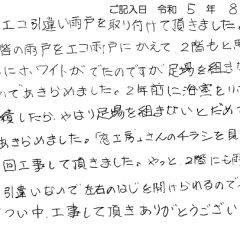 ご記入日 令和 5 年 8
エコ引違い雨戸を取り付けて頂きました。
階の雨戸をエコ雨戸にかえて2階もと思
にホワイトがでたのですが足場を組ま
いであきらめました。2年前に浴室を
積したら、やはり足場を組まないとだめで
あきらめました。「窓工房」さんのチラシを見
回工事して頂きました。やっと2階にも雨
引違いなので左右のはじを開けられるので
つい中、工事して頂きありがとうござい